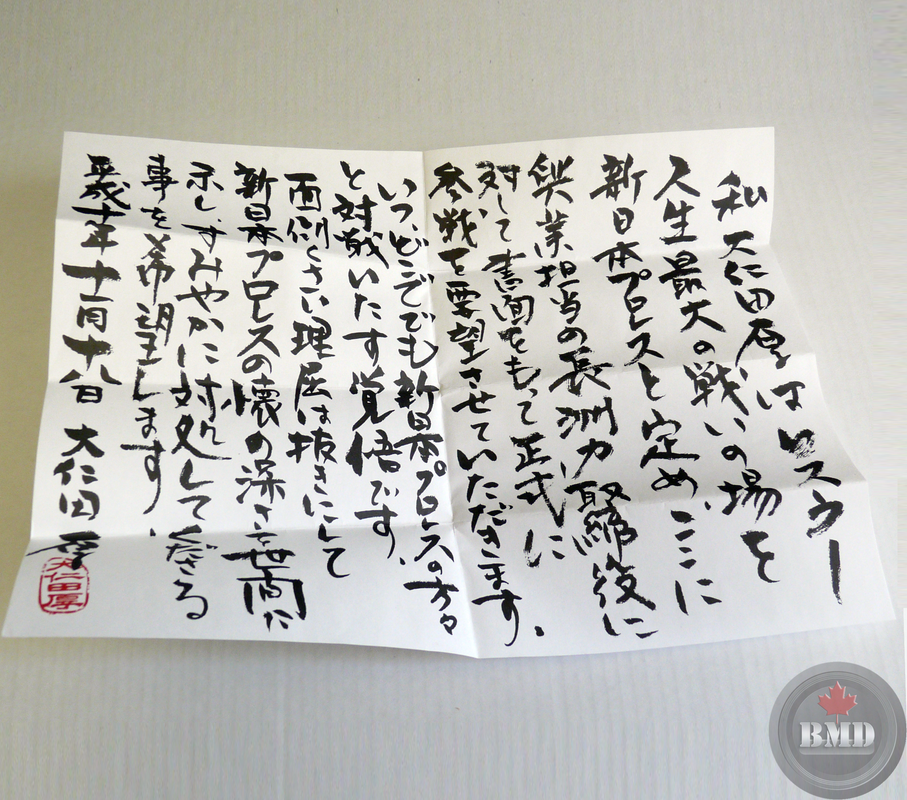 私大仁田厚はレスラー
人生最大の戦いの場を
新日本プロレスと定め、ここに
興業担当の長洲力取締役に
対して書面をもって正式に
参戦を要望させていただきます。
いつ、どこででも新日本プロレスの方々
と対戦いたす覚悟です、
面倒くさい理屈は抜きにして
新日本プロレスの懐の深さを世間に
示し、すみやかに対処してくださる
事を希望します、
平成十年十一月十八日 大仁田厚
大仁田厚
BMD